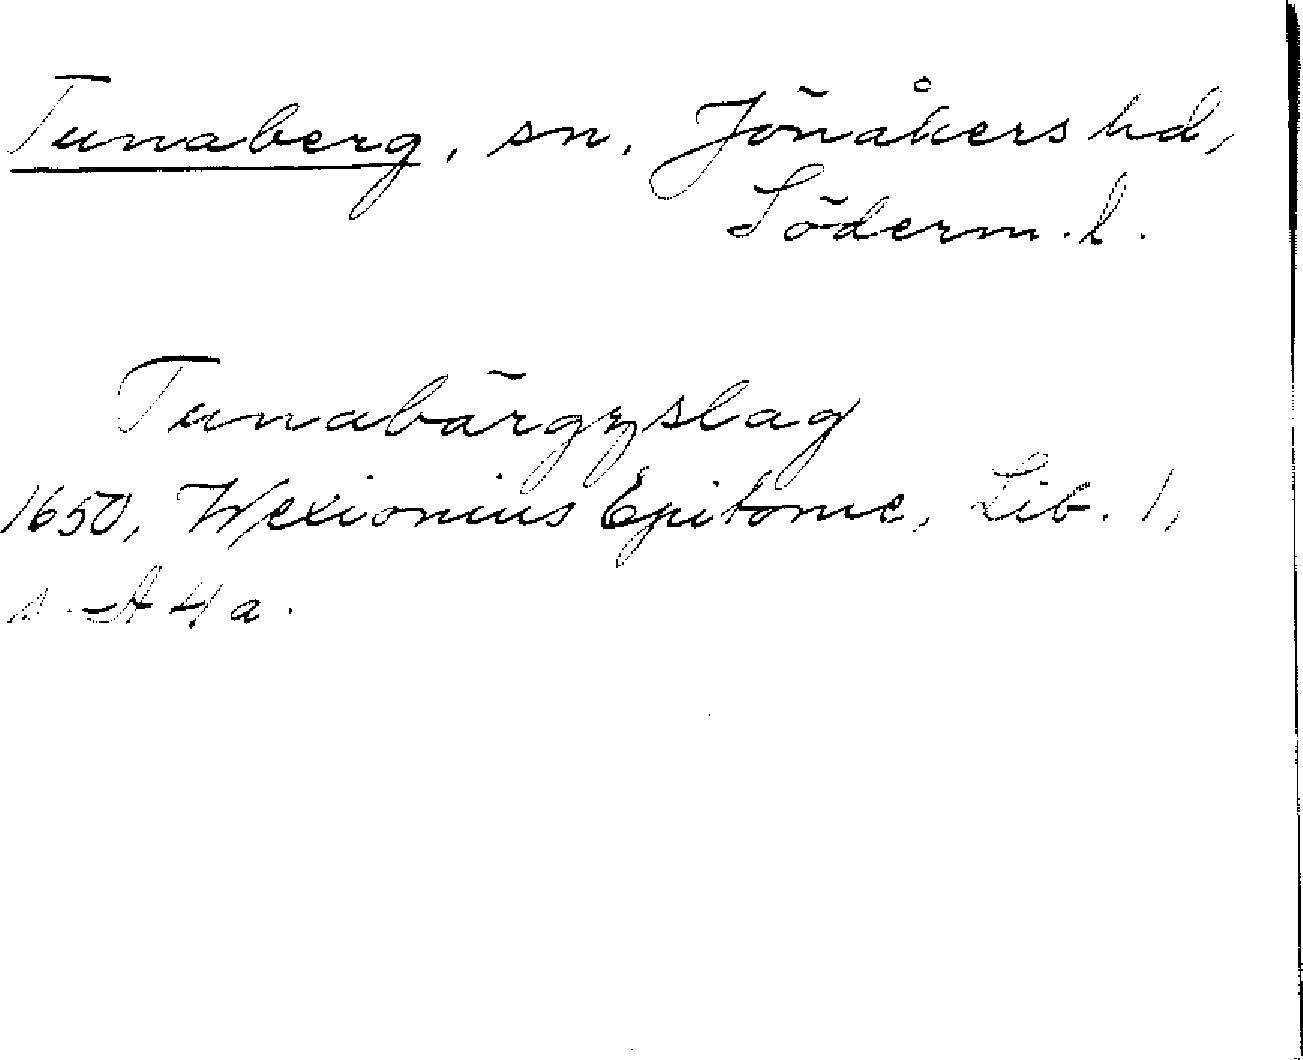 Tunaberg, sn, Jönåkers hd,
Söderm. l.
Tunabärgzslag
1650, Wexionius Epitome, Lib. 1,
s. A 4 a.